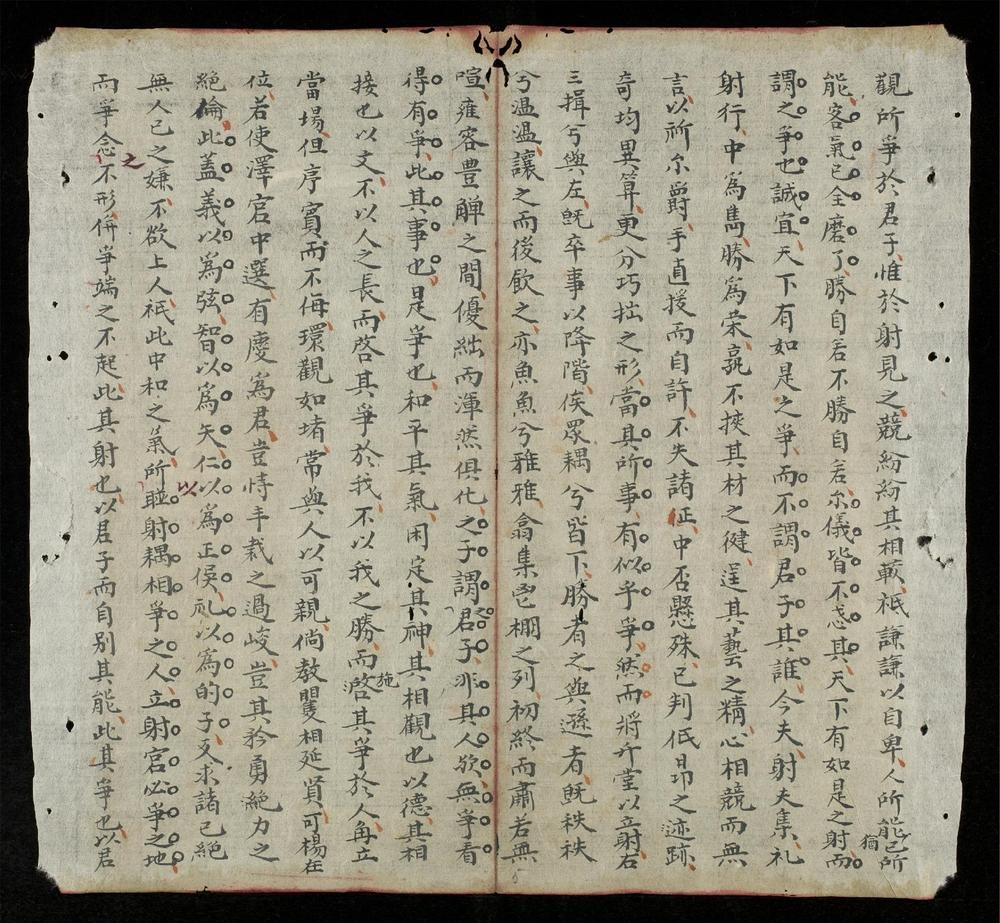 觀所爭於君子惟於射見之競紛紛其相軋祇謙謙以自卑人所能己所
能猶客氣已全磨了勝自若不勝自若尔儀皆不忒其天下有如是之射而
謂之爭也誠宜天下有如是之爭而不謂君子其誰今夫射夫集礼
射行中為雋勝為榮羸不挾其材之健逞其藝之精心相競而無
言以祈尔爵手直援而自許不失諸正中否懸殊已判低昂之迹跡
奇均異算更分巧拙之形當其所事有似乎爭然而將升堂以立射右
三揖兮與左既卒事以降階俟眾耦兮皆下勝者之與遜者既秩秩
兮温温讓之而後飲之亦魚魚兮雅雅翕集皂棚之列初終而肅若無
喧雍容豊觶之間優絀而渾然俱化之子謂君子非具人欤無爭看
得有爭此其事也是爭也和平其氣閑定其神其相觀也以德其相
接也以文不以人之長而啓其爭於我不以我之勝而施其爭於人毎立
當塲但序賓而不侮環觀如堵常與人以可親倘教矍相延賓可楊在
位若使澤宮中選有慶為君豈恃丰裁之過峻豈其矜勇絶力之
絶倫此蓋義以為弦智以為矢仁以為正侯礼以為的子交求諸己絶
無人己之嫌不欲上人祇此中和之氣所以聄射耦相爭之人立射宮必爭之地
而爭之念不形倂爭端之不起此其射也以君子而自别其能此其爭也以君